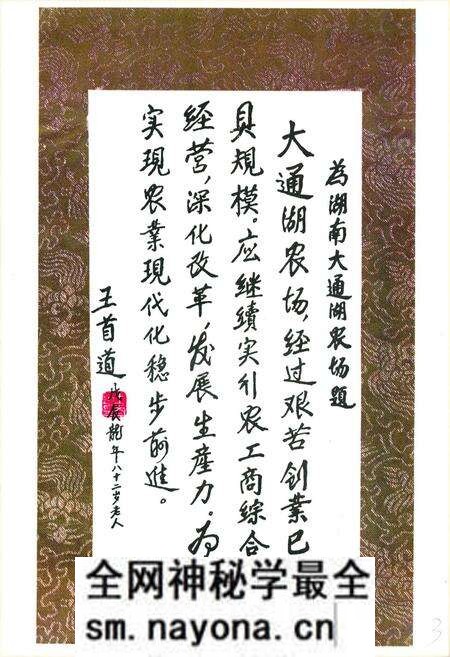 为湖南大通湖农场题
大通湖农场，经过艰苦创业已
具规模。应继续实行农工商綜合
经营，深化改革，发展生産力。为
实現农業現代化稳步前進。
王首道
戊辰龍年八十二岁老人
全网神秘学最全
sm.nayona.cn
3